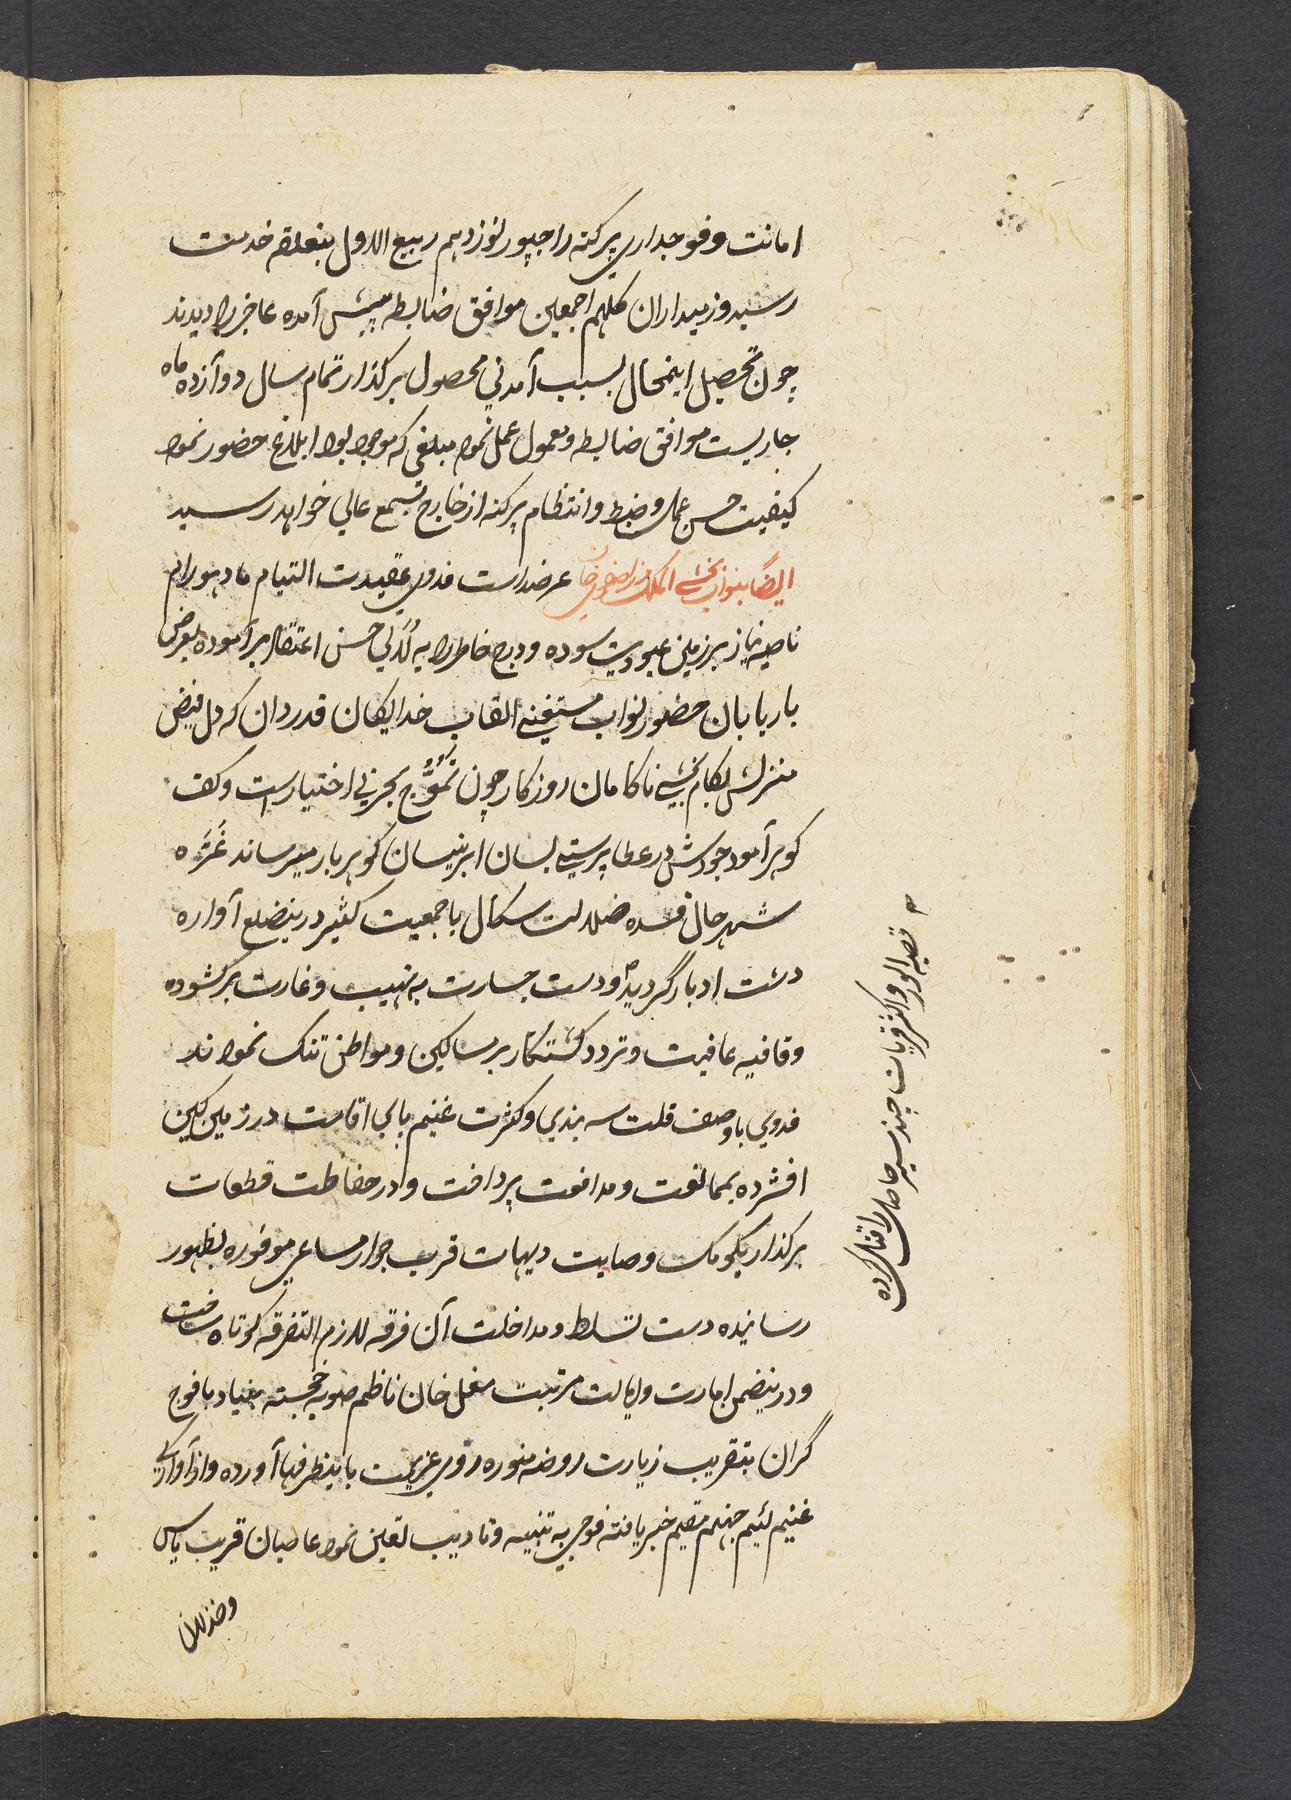 امانت وفوجداری پرکنه راجپور نوزدهم ربیع الاول بتعلقه خدمت
رسید وزمیداران کلهم اجمعین موافق ضابطه پیش آمده عاجز را دیدند
چون تحصیل اینمحال بسبب آمدنی محصول برکذار تمام سال دوآزده ماه
جاریست موافق ضابطه ومعمول عمل نموده مبلغی که موجود بود ابلاغ حضور نموده
کیفیت حسن عمل وضبط وانتظام پرکنه از خارج بسمع عالی خواهد رسید
ایضاً بنواب بخشی الملک عرضداشت فدوی عقیدت التیام مادهورام
ناصیه نیاز بر زمین عبودیت سوده ودرج خاطر را به لآلی حسن اعتقاد برآموده بعرض
باریابان حضور نواب مستغنی القاب خدایکان قدردان که دل فیض
منزلش بکام بخشی ناکامان روزکار چون تموّج بحر بی اختیارست وکف
کوهر آمود جودش در عطا پرستی بسان ابر نیسان کوهر بار میرساند غرّه
شهر حال فسده ضلالت سکال با جمعیت کثیر درینضلع آواره
دشت ادبار گردیده ودست جسارت به نهیب وغارت برکشوده
وقافیه عافیت وتردد کشتکار بر ساکنین ومواطن تنک نموده اند
فدوی باوصف قلت سه بندی وکثرت غنیم پای اقامت در زمین کین
افشرده بممانعت ومدافعت پرداخت ودر حفاظت قطعات
برکذار بکومک وصایت دیهات قرب جوار مساعی موفوره بظهور
رسانیده دست تسلط ومداخلت آن فرقه لازم التفرقه کوتاه ساخت
ودرینضمن امارت وایالت مرتبت مغل خان ناظم صوبه خجسته بنیاد با فوج
گران بتقریب زیارت روضه منوره روی عزیمت باینطرفها آورده واز آوارکی
غنیم لئیم جهنم مقیم خبر یافته فوجی به تنبیه وتادیب تعین نموده عاصیان قریب یاس
وخذلان
قصبه الور واکثر قریات جید سیر حاصل را قتل کرده